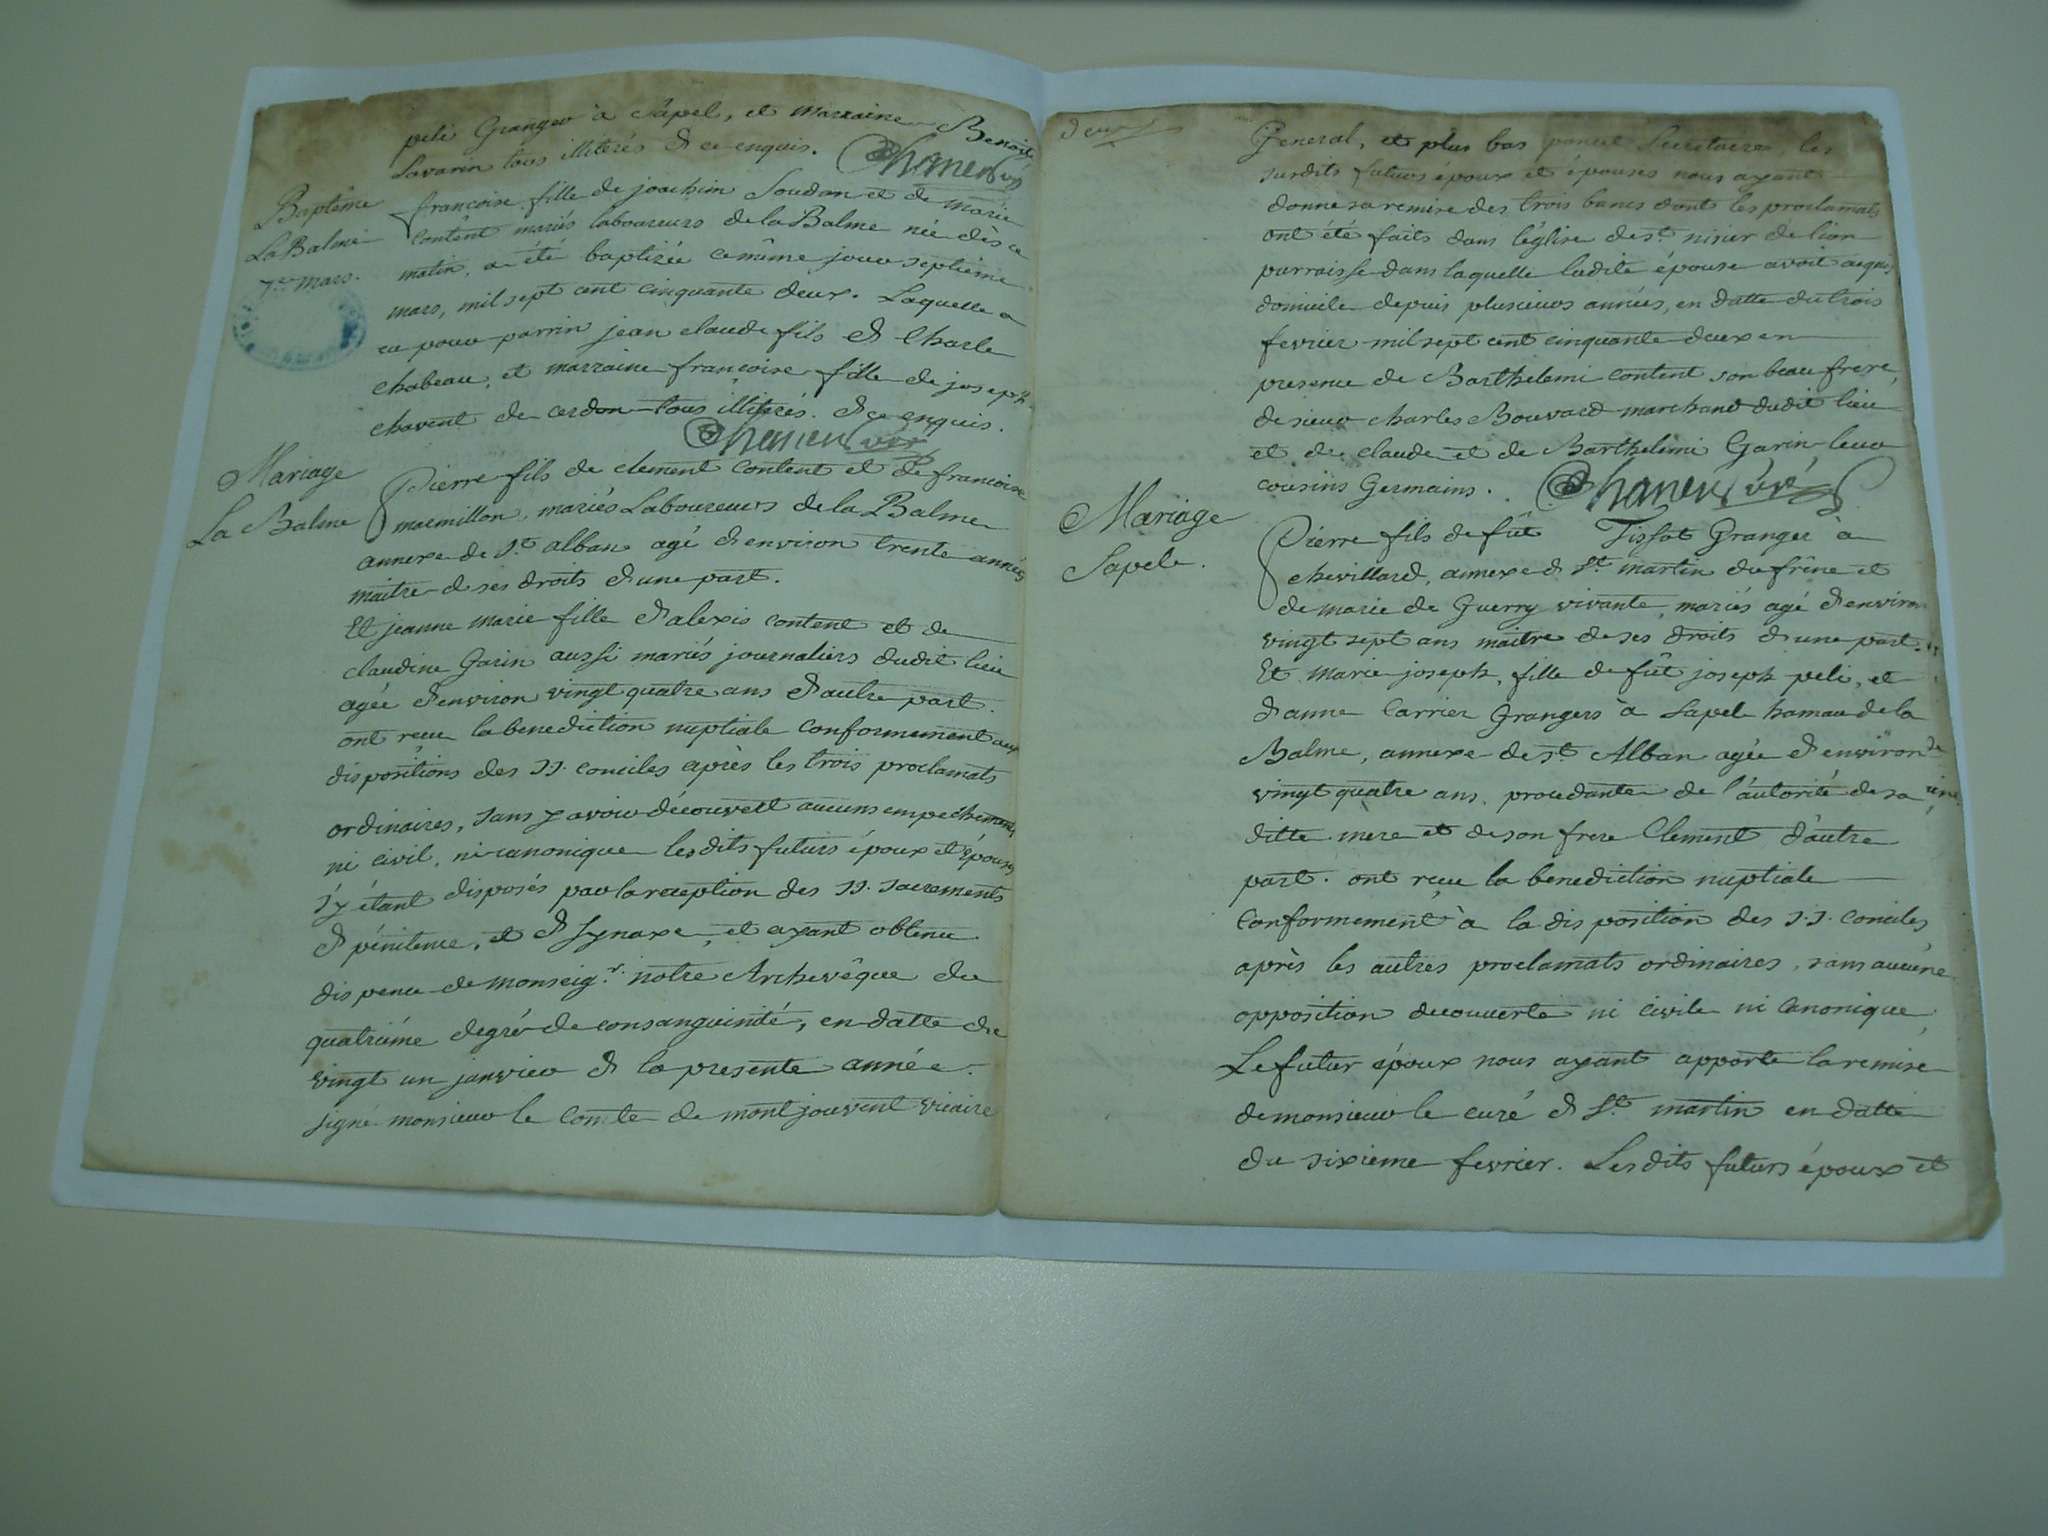 peli Granger à Sâpel, et marraine Benoite
Savarin tous illiterés de ce enquis.
Baptême
La Balme
7e mars.
françoise fille de joachim Soudan et de marie
Contênt mariés laboureurs de la Balme née dès ce
matin a été baptizée ce même jour septième
mars, mil sept cent cinquante deux. Laquelle a
eu pour parrin jean claude fils de Charle
chabeau, et marraine françoise fille de joseph
chavent de cerdon tous illiterés. de ce enquis.
Mariage
La Balme
Pierre fils de clement Content et de francoise
marmillon, mariés Laboureurs de la Balme
annexe de St alban agé d'environ trente années
maitre de ses droits d'une part.
Et jeanne marie fille d'alexis content et de
claudine Garin aussi mariés journaliers dudit lieu
agée d'environ vingt quatre ans d'autre part.
ont reçu la benediction nuptiale conformement aux
dispositions des SS. conciles après les trois proclamats
ordinaires, sans y avoir découvert aucuns empechements
ni civil, ni canonique lesdits futurs époux et épouses
s'y étant disposés par la reception des SS. sacrements
de pénitence, et de synaxe, et ayant obtenu
dispence de monseigr. notre Archevêque du
quatriéme degré de consanguinité, en datte du
vingt un janvier de la presente année.
signé monsieur le Comte de montjouvent vicaire
deux
General, et plus bas Secretaire, les
surdits futurs époux et épouses nous ayant
donné sa remise des trois bancs dont les proclamats
ont été faits dans l'église de St. nizier de lion
parroisse dans laquelle ladite épouse avoit acquis
domicile depuis plusieurs années, en datte du trois
fevrier mil sept cent cinquante deux en
presence de Barthelemi content son beau frere,
de sieur charles Bouvard marchand dudit lieu
et de claude et de Barthelemi Garin leur
cousins Germains.
Mariage
Sapel.
Pierre fils de fût Tissot Granger à
chevillard, annexe de St. martin du frêne et
de marie de Guerry vivante, mariés agé d'environ
vingt sept ans maitre de ses droits d'une part.
Et marie joseph, fille de fût joseph peli, et
d'anne Carrier Grangers à Sapel hamau de la
Balme, annexe de St. Alban agée d'environ
vingt quatre ans, procedante de l'autorité de sa
ditte mere et de son frere Clement d'autre
part. ont reçu la benediction nuptiale
Conformement à la disposition des SS. conciles
après les autres proclamats ordinaires, sans aucune
opposition decouverte ni civile ni canonique,
Le futur époux nous ayant apporté la remise
de monsieur le curé de St. martin en datte
du sixieme fevrier. Lesdits futurs époux et